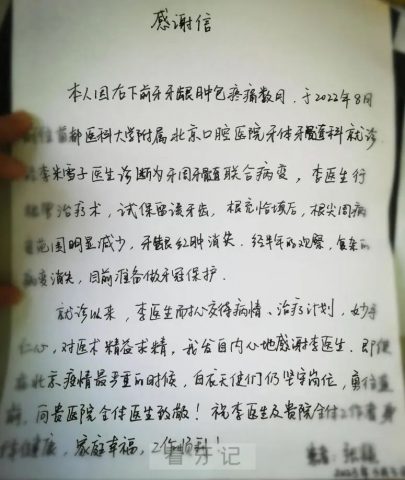 感谢信
本人因右下前牙牙龈肿包疼痛数月，于2022年8月
前往首都医科大学附属北京口腔医院牙体牙髓科就诊
李朱雪子医生诊断为牙周牙髓联合病变，李医生行
根管治疗术，试保留该牙齿，根充恰填后，根尖周病
变范围明显减少，牙龈红肿消失。经半年的观察，
病变消失，目前准备做牙冠保护。
就诊以来，李医生耐心交待病情、治疗计划，妙手
仁心，对医术精益求精，我发自内心地感谢李医生。即便
在北京疫情最严重的时候，白衣天使们仍坚守岗位，勇往直
前，向贵医院全体医生致敬！祝李医生及贵院全体工作者身
体健康，家庭幸福，工作顺利！
患者：张
看牙记